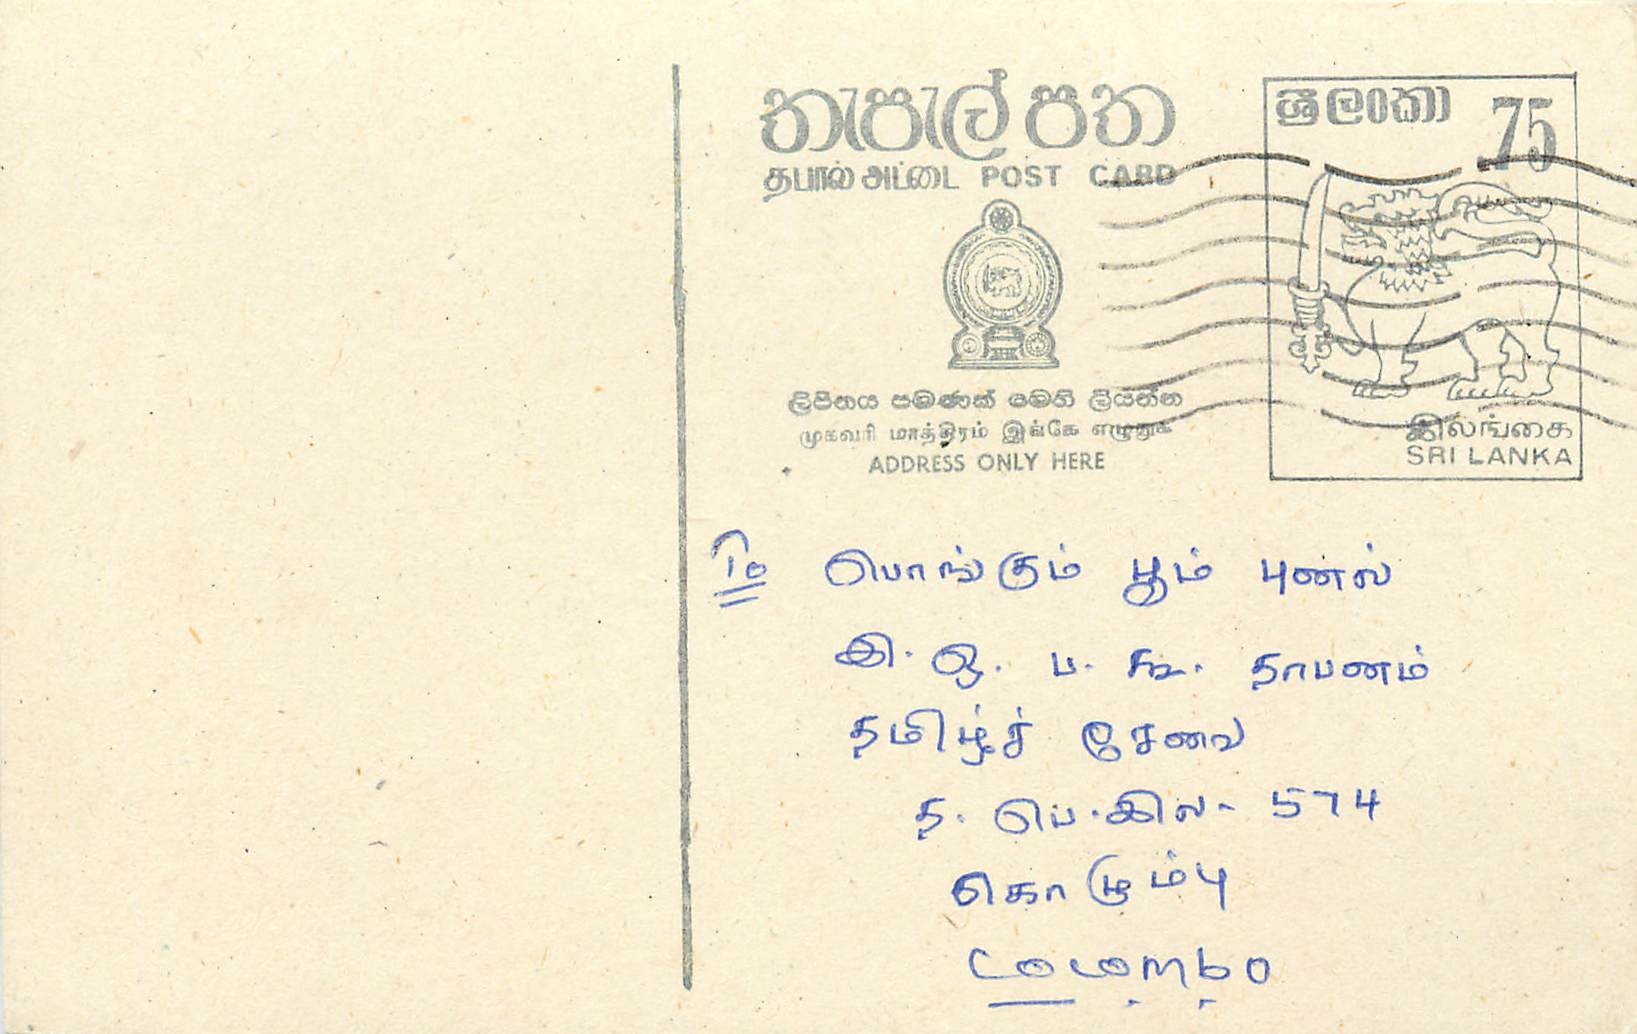 තැපැල් පත
தபால் அட்டை POST CARD
ශ්‍රී ලංකා 75
ලිපිනය පමණක් මෙහි ලියන්න
முகவரி மாத்திரம் இங்கே எழுதுக
ADDRESS ONLY HERE
இலங்கை
SRI LANKA
To பொங்கும் பூம் புனல்
இ. ஒ. ப. கூ. தாபனம்
தமிழ்ச் சேவை
த. பெ. இல - 574
கொழும்பு
Colombo